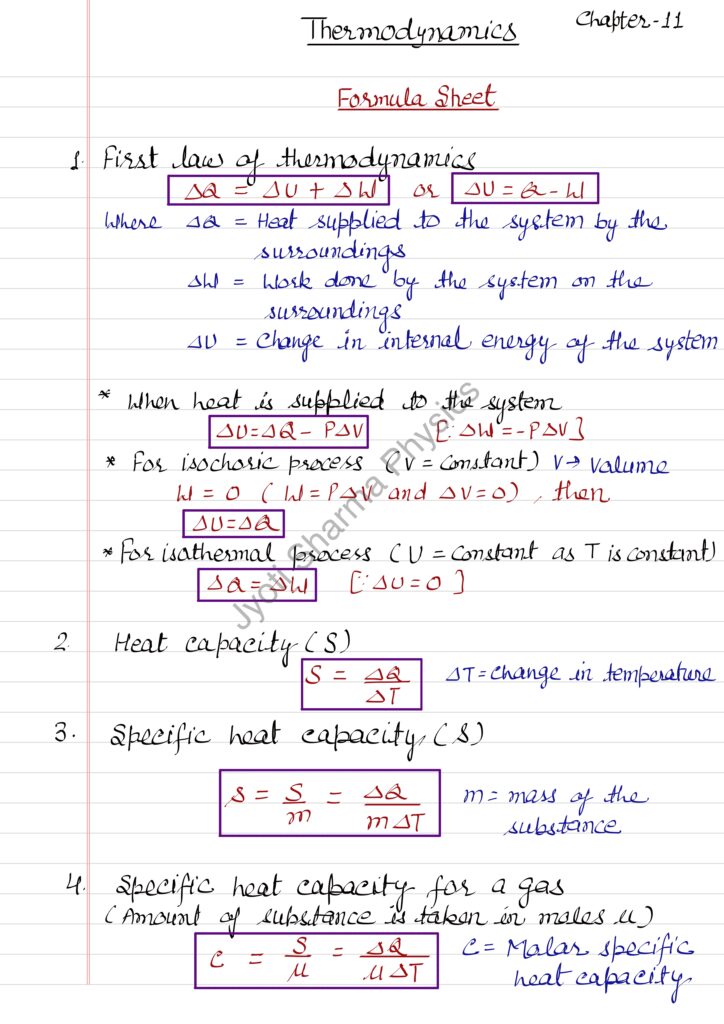 Thermodynamics
Chapter-11
Formula Sheet
1. First law of thermodynamics
ΔQ = ΔU + ΔW or ΔU = Q - W
Where ΔQ = Heat supplied to the system by the
surroundings
ΔW = Work done by the system on the
surroundings
ΔU = Change in internal energy of the system
* When heat is supplied to the system
ΔU=ΔQ - PΔV [∵ ΔW=-PΔV]
* For isochoric process (V = Constant) V→ Volume
W = 0 ( W = PΔV and ΔV=0) , then
ΔU=ΔQ
* For isothermal process (U = Constant as T is constant)
ΔQ = ΔW [∵ ΔU = 0 ]
2. Heat capacity (S)
S = ΔQ/ΔT ΔT = Change in temperature
3. Specific heat capacity, (S)
s = S/m = ΔQ/mΔT m = mass of the
substance
4. Specific heat capacity for a gas
(Amount of substance is taken in moles μ)
C = S/μ = ΔQ/μΔT C = Molar specific
heat capacity
Jyoti Sharma Physics